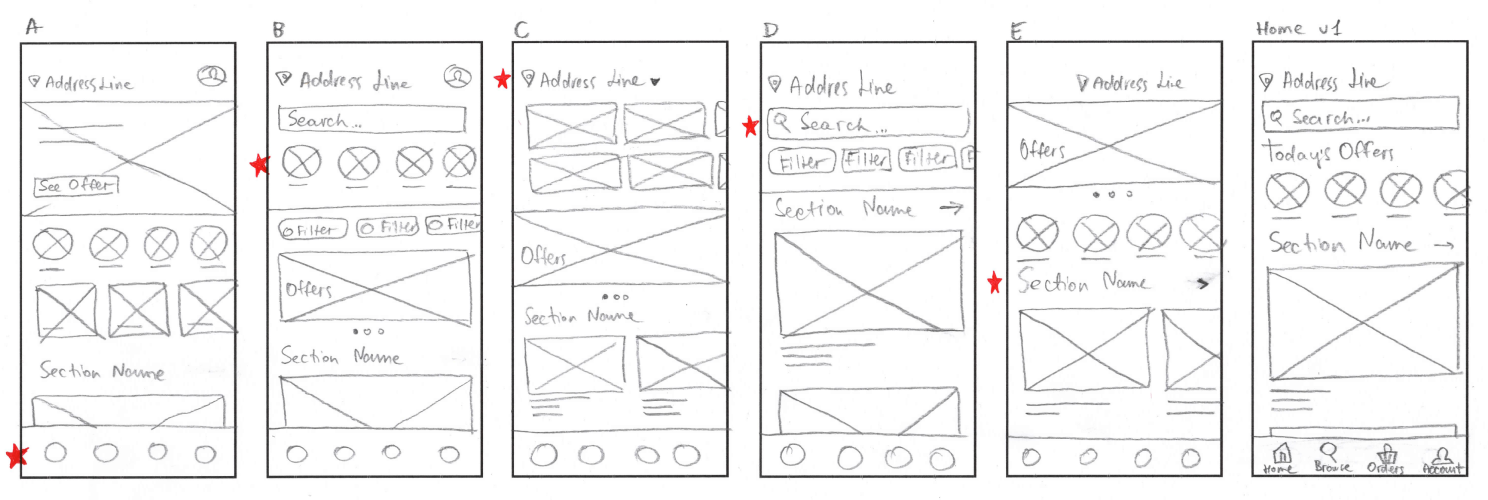 A
Address Line
See Offer
Section Name
B
Address Line
Search...
Filter
Filter
Filter
Offers
Section Name
C
Address Line
Offers
Section Name
D
Addres Line
Search...
Filter
Filter
Filter
F
Section Name
E
Address Line
Offers
Section Name
Home v1
Address Line
Search...
Today's Offers
Section Name
Home Browse Orders Account